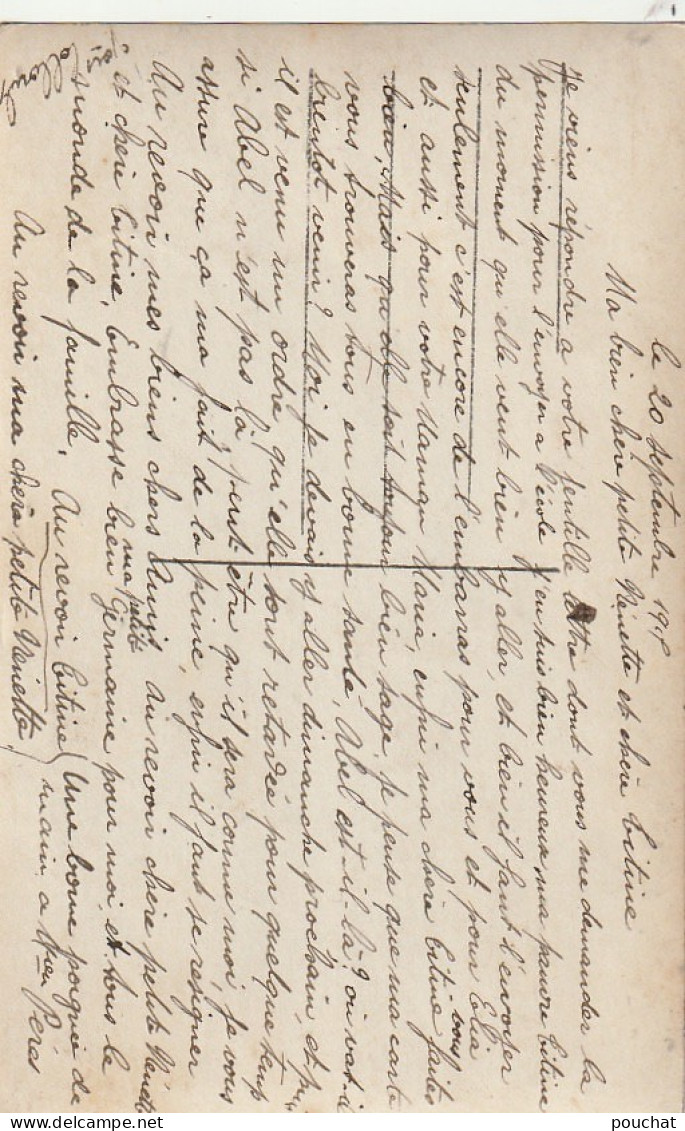 le 20 septembre 191
Ma bien chère petite Nénette et chère Titine
Je viens répondre a votre gentille lettre dont vous me demander la
permission pour l'envoyer a l'école j'en suis bien heureux ma pauvre Titine
du moment qu'elle veut bien y aller, et bien il faut l'envoyer
seulement c'est encore de l'embarras pour vous et pour Elia
et aussi pour votre Maman Maria, enfin ma chère Titine faites
bien, Mais qu'elle soit toujour bien sage, je pense que ma carte
vous trouveras tous en bonne santé, Abel est-il là? ou vat-il
bientot venir? Moi je devais y aller dimanche prochain, et puis
il est venu un ordre qu'elle sont retardée pour quelque temps
si Abel n'est pas là peut-être qu'il sera comme moi, je vous
assure que ça ma fait de la peine, enfin il faut se resigner
Au revoir mes biens chers Amis au revoir chère petite Nénette
et chère Titine, Embrasse bien ma petit Germaine pour moi et tous le
monde de la famille, Au revoir Titine Une bonne poignée de
main a Mr Péras
Au revoir ma chère petite Nénette
pouchat